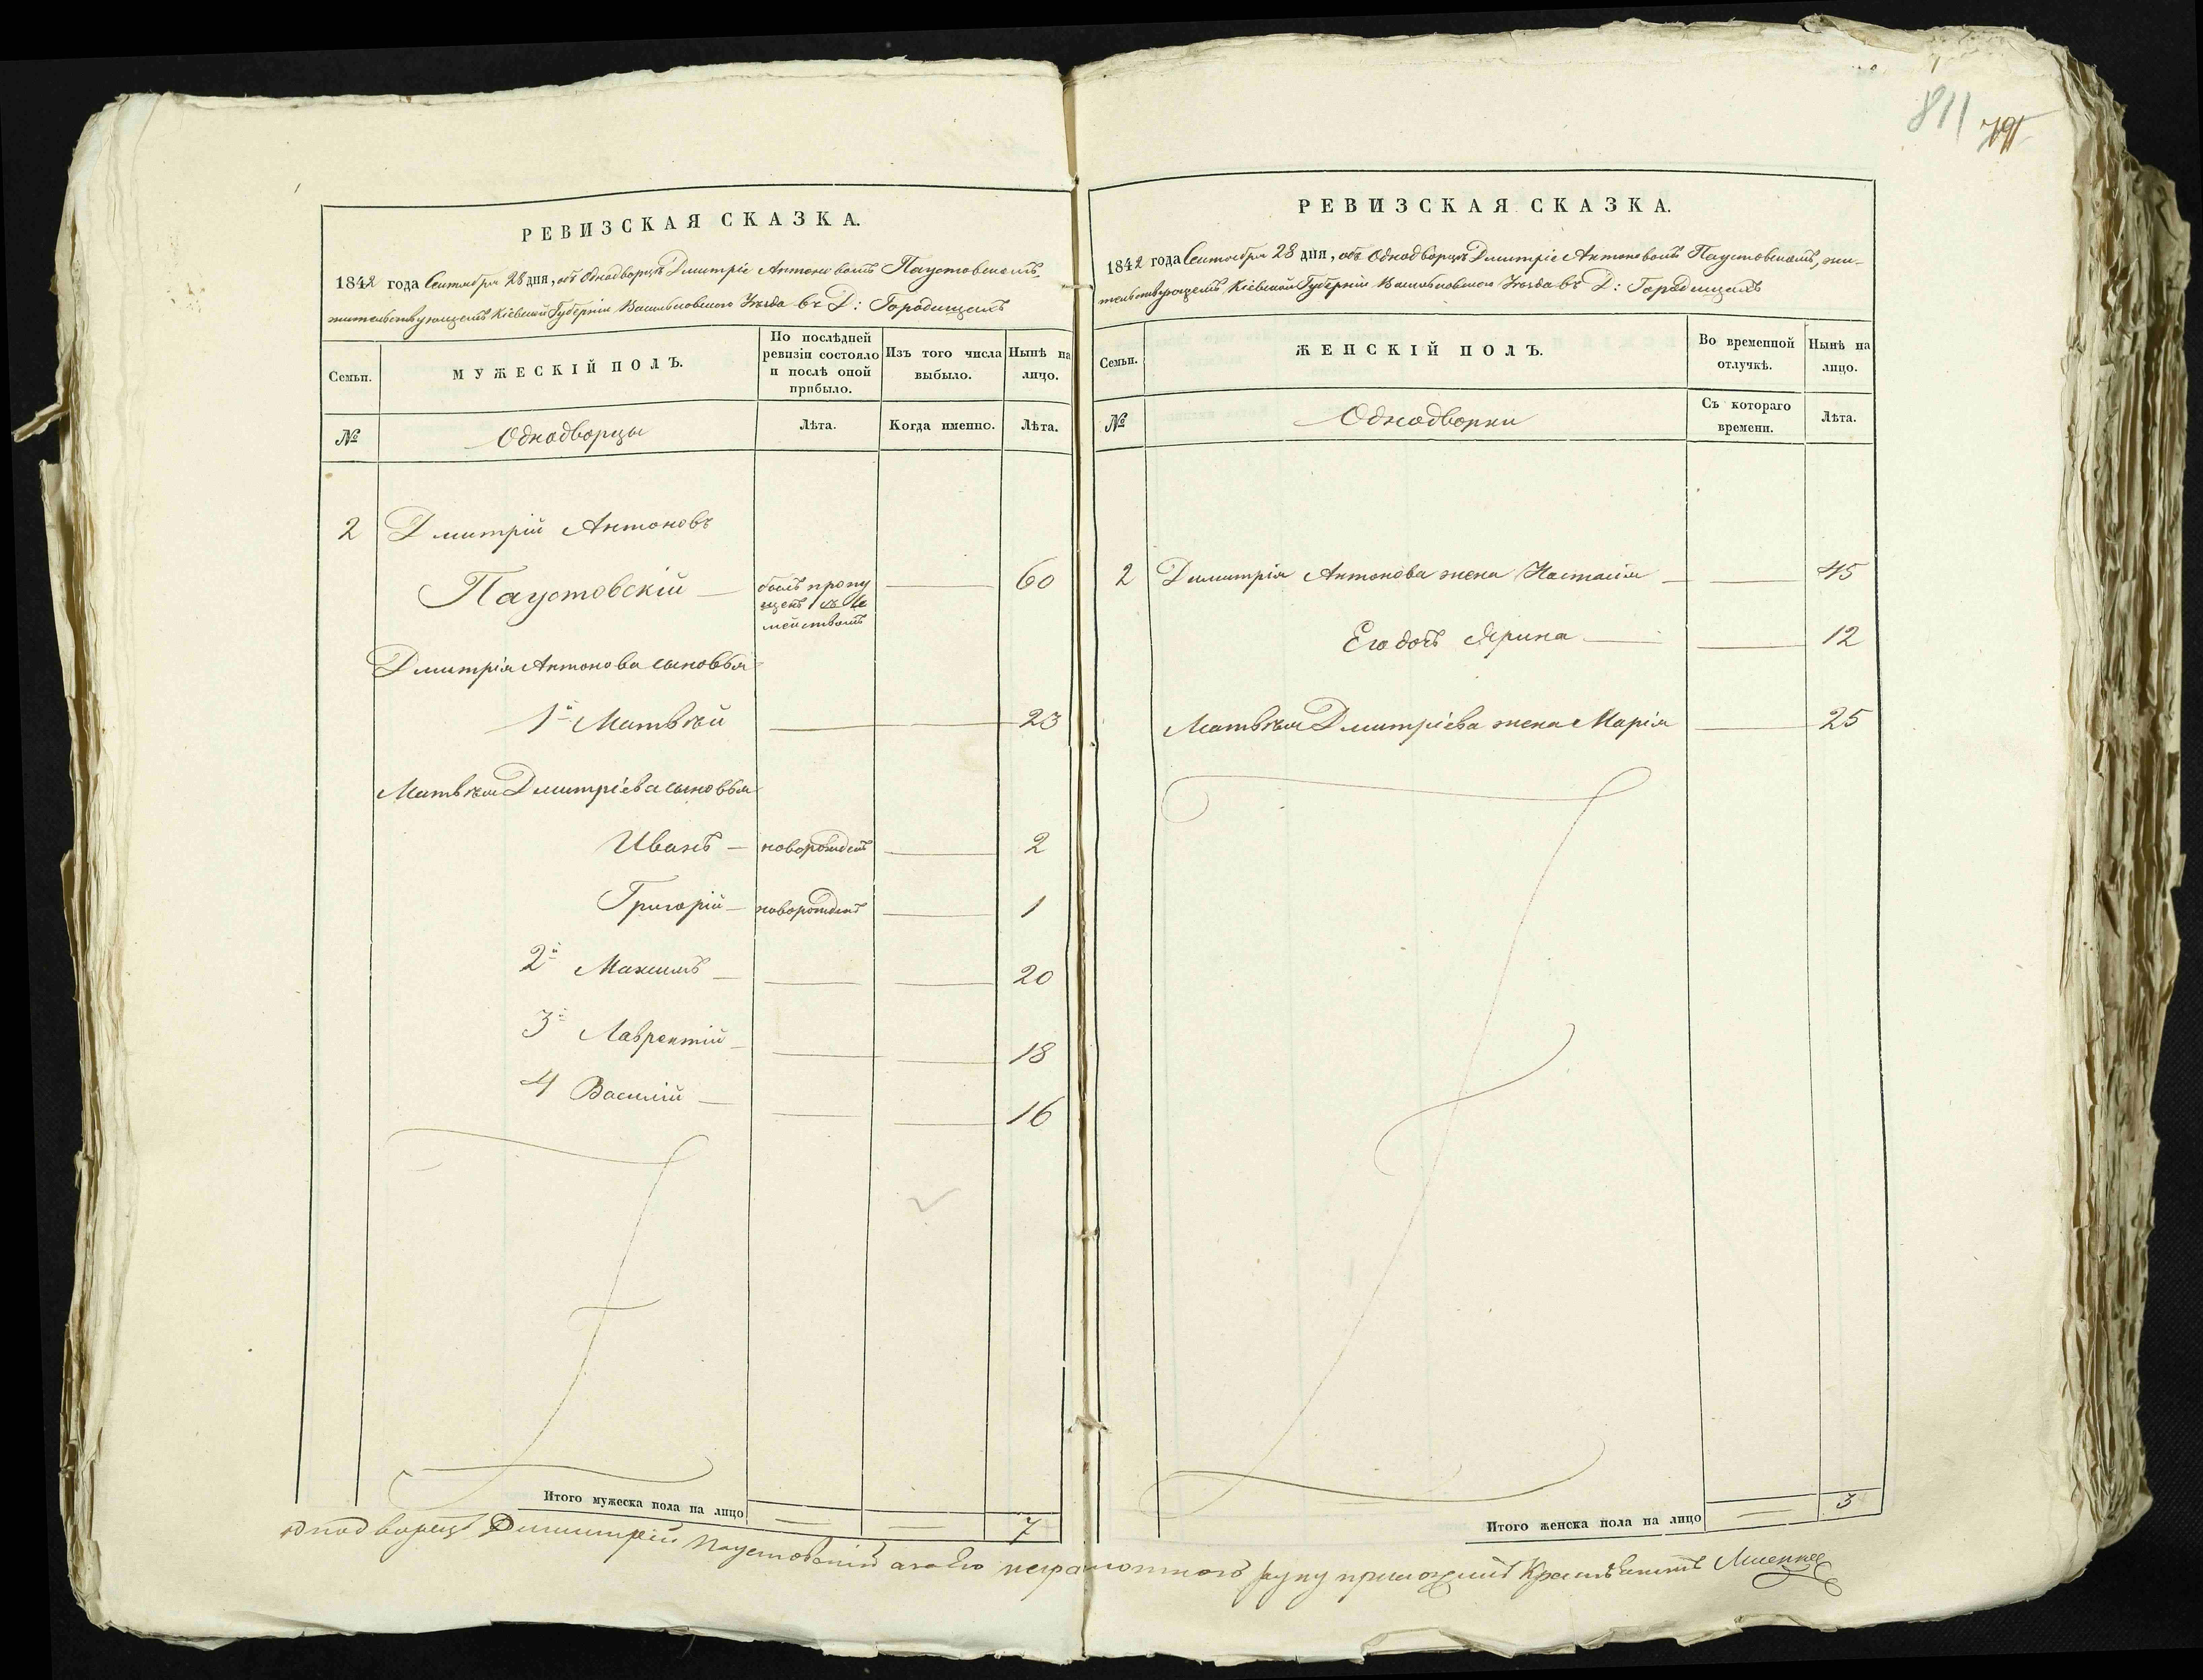 811 791
РЕВИЗСКАЯ СКАЗКА.
1842 года Сентября 28 дня, объ Однодворцѣ Дмитріе Антоновомъ Паустовскомъ,
жительствующемъ Кіевской Губерніи Васильковскаго Уѣзда въ Д: Городищахъ
Семьи.
МУЖЕСКІЙ ПОЛЪ.
По послѣдней ревизіи состояло и послѣ оной прибыло.
Изъ того числа выбыло.
Нынѣ на лицо.
№
Однодворцы
Лѣта.
Когда именно.
Лѣта.
2 Дмитрій Антоновъ
Паустовскій — былъ пропу — 60
щенъ съ Се
мействомъ
Дмитрія Антонова сыновья
1й Матвѣй — 23
Матвѣя Дмитріева сыновья
Иванъ — новорожденъ — 2
Григорій — новорожденъ — 1
2й Максимъ — 20
3й Лаврентій — 18
4 Василій — 16
Итого мужеска пола на лицо — — 7
РЕВИЗСКАЯ СКАЗКА.
1842 года Сентября 28 дня, объ Однодворцѣ Дмитріе Антоновомъ Паустовскомъ, жи-
тельствующемъ Кіевской Губерніи Васильковскаго Уѣзда въ Д: Городищахъ
Семьи.
ЖЕНСКІЙ ПОЛЪ.
Во временной отлучкѣ.
Нынѣ на лицо.
№
Однодворки
Съ котораго времени.
Лѣта.
2 Димитрія Антонова жена Настасія — 45
Его дочь Ярина — 12
Матвѣя Дмитріева жена Марія — 25
Итого женска пола на лицо — 3
однодворецъ Димитрій Паустовскій а за Его неграмотного руку приложилъ